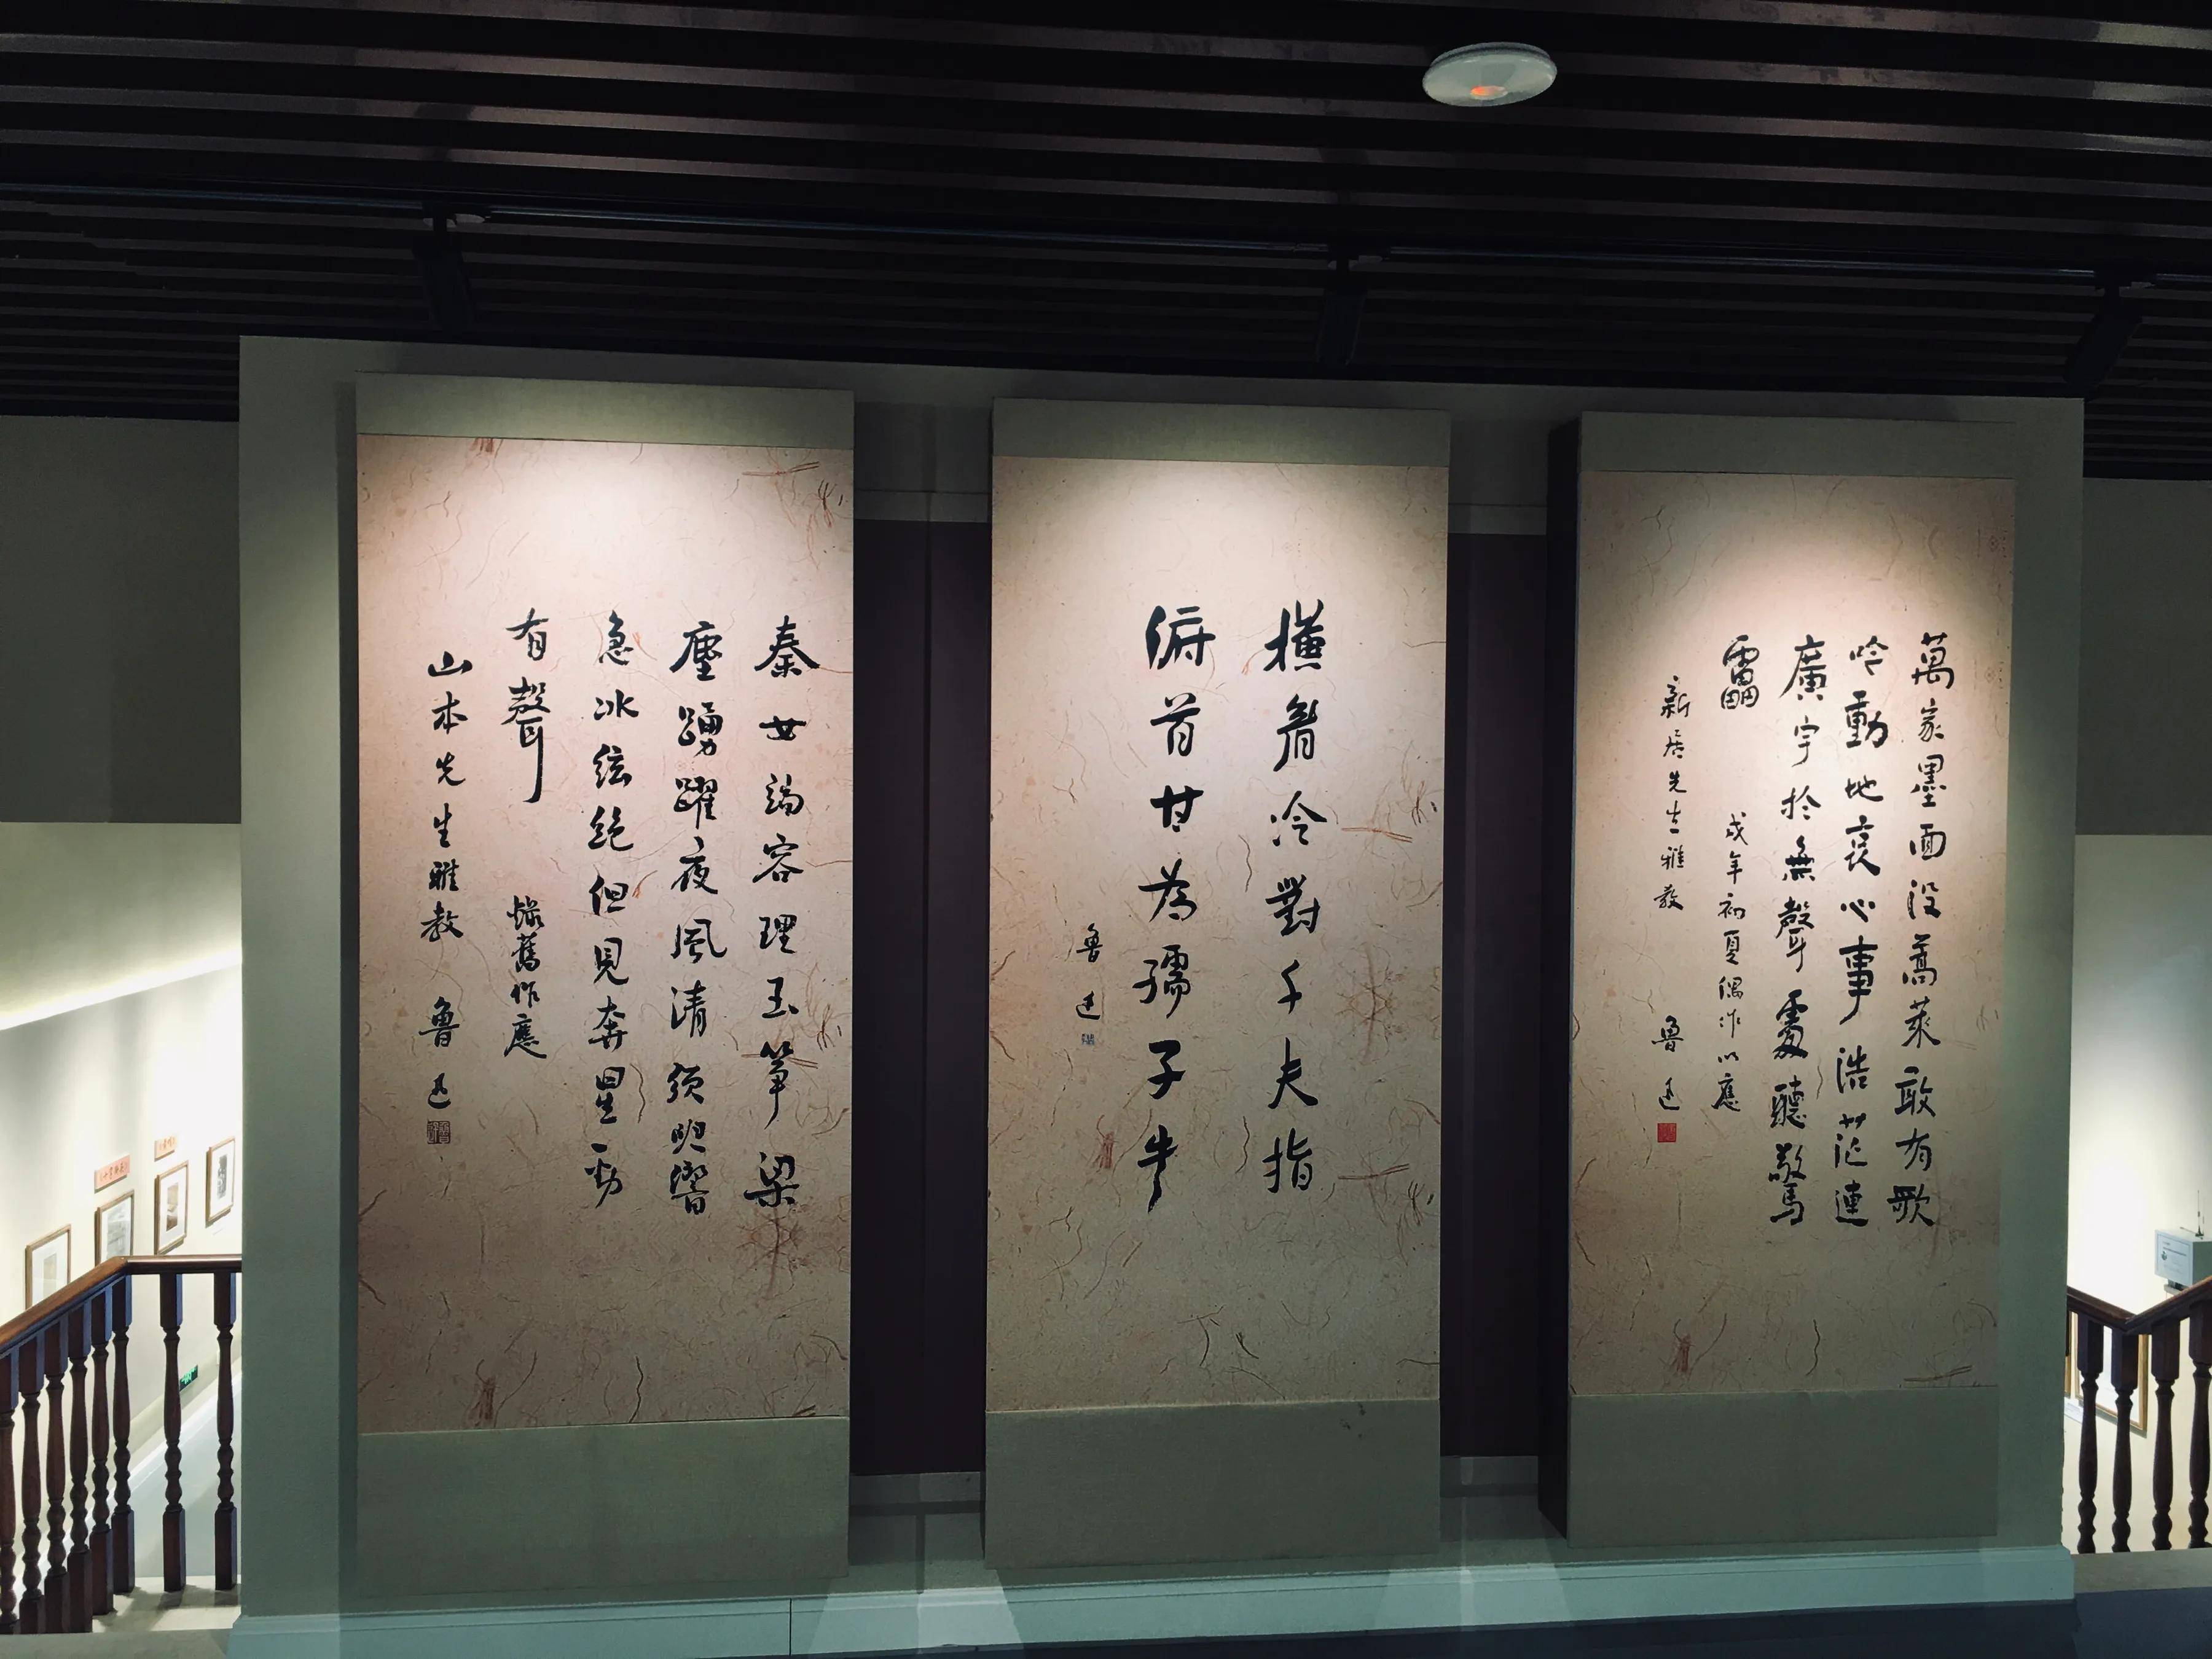 萬家墨面没蒿萊敢有歌
吟動地哀心事浩茫連
廣宇於無聲處聽驚
靁 戌年初夏偶作以應
新居先生雅教 魯迅
横眉冷對千夫指
俯首甘為孺子牛
魯迅
秦女端容理玉筝梁
塵踴躍夜風清須臾響
急冰絃絕但見奔星勁
有聲 錄舊作應
山本先生雅教 魯迅